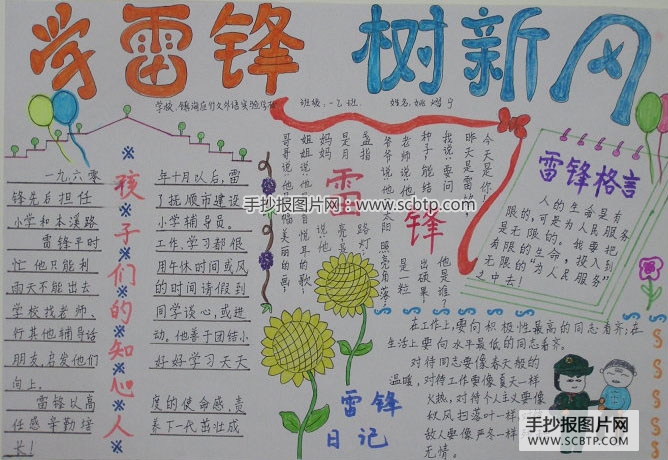 学雷锋 树新风
班级:一乙班
一九六零 年十月以后,雷
锋先后担任 了抚顺市建设
小学和本溪路 小学辅导员。
雷锋平时 工作、学习都很
忙,他只能利 用午休时间或风
雨天不能出去 的时间请假到
学校找老师、 同学谈心,或进
行其他辅导活 动。他善于团结小
朋友,启发他们 好好学习天天
向上。
雷锋以高 度的使命感、责
任感辛勤培 养下一代茁壮成
长!
孩子们的知心人
雷锋
今天是你!
昨天是雷锋,
我说:要问他是谁?
种子,能结出硕果!
老师说他是一粒
爷爷说他是太阳照亮角落!
路灯
妈妈
姐姐说他 悦耳的歌!
哥哥说他 幅美丽的画!
雷锋格言
人的生命是有
限的,可是为人民服务
是无限的。我要把
有限的生命,投入到
无限的“为人民服务”
之中去!
雷锋
日记
在工作上,要向积极性最高的同志看齐,在
生活上要向水平最低的同志看齐。
对待同志要像春天般的
温暖,对待工作要像夏天一样
火热,对待个人主义要像
秋风扫落叶一样
敌人要像严冬一样
无情。
手抄报图片网
www.scbtp.com
手抄报图片网
WWW.SCBTP.COM